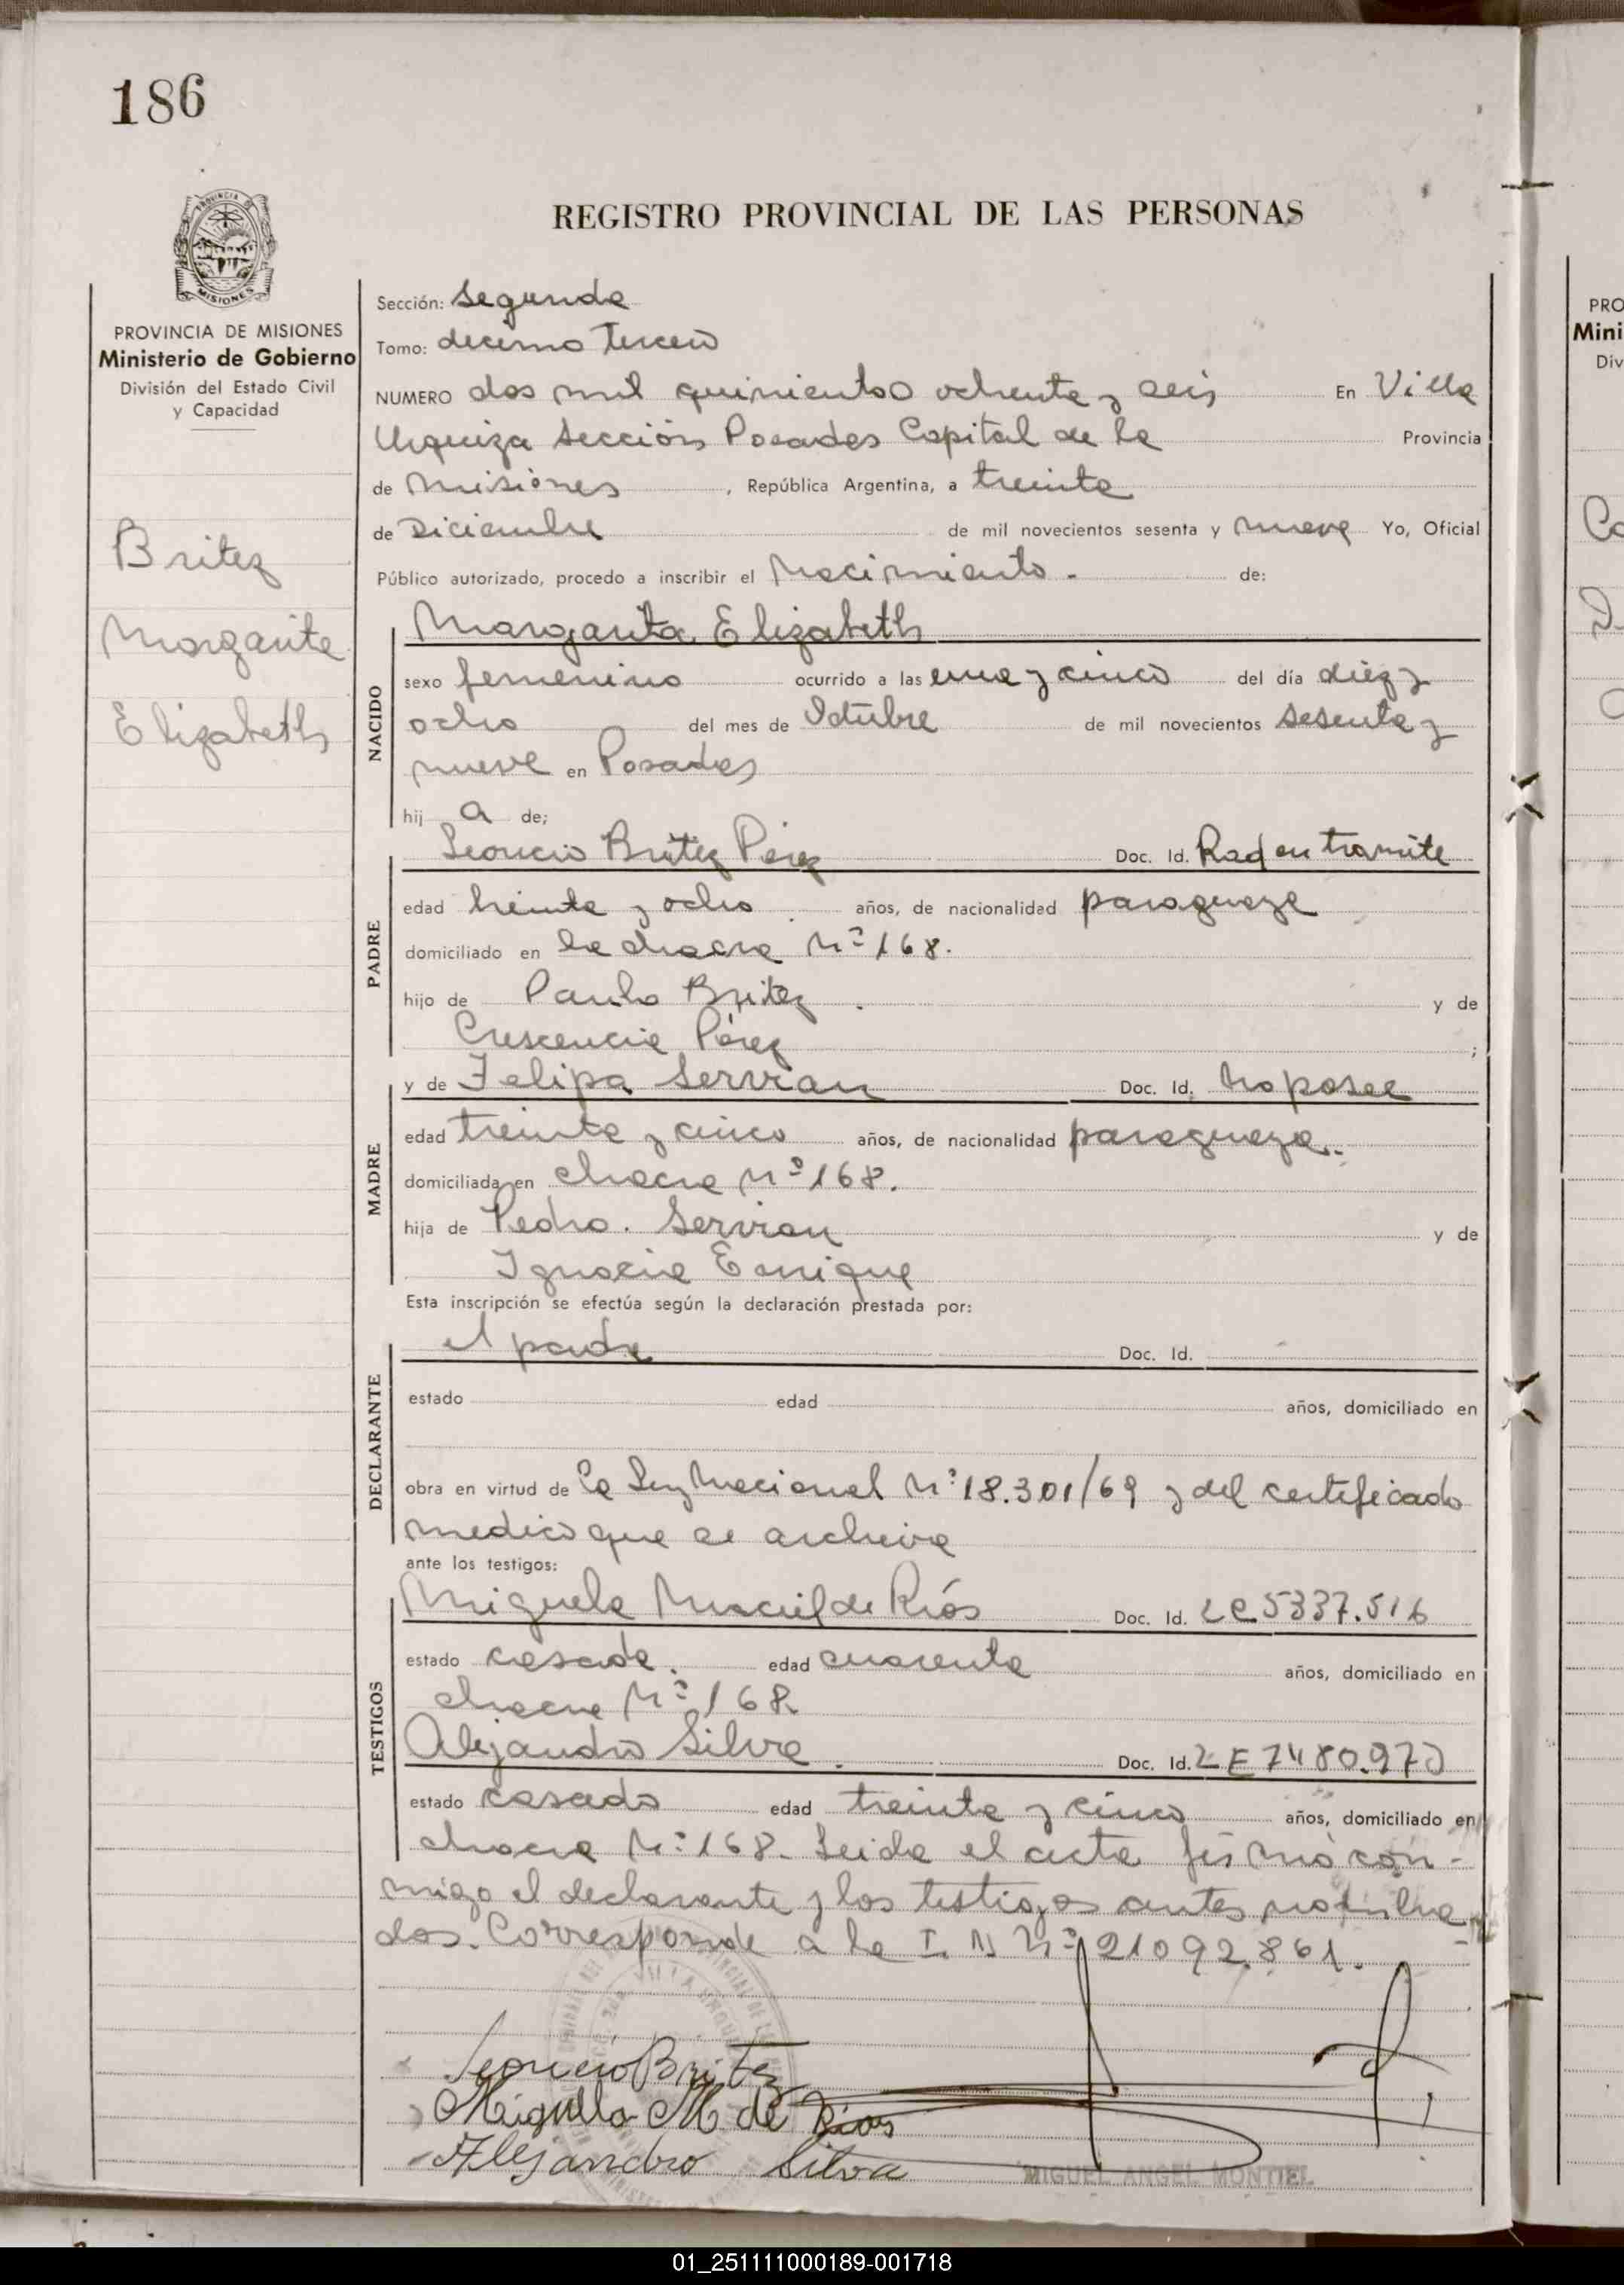 186
PROVINCIA DE
MISIONES
REGISTRO PROVINCIAL DE LAS PERSONAS
PROVINCIA DE MISIONES
Ministerio de Gobierno
División del Estado Civil
y Capacidad
Britez
Margarita
Elizabeth
Sección: Segunda
Tomo: decimo Tercero
NUMERO dos mil quinientos ochenta y seis En Villa
Urquiza Sección Posadas Capital de la Provincia
de Misiones, República Argentina, a treinta
de Diciembre de mil novecientos sesenta y nueve Yo, Oficial
Público autorizado, procedo a inscribir el Nacimiento.- de:
NACIDO
Margarita Elizabeth
sexo femenino ocurrido a las una y cinco del día diez y
ocho del mes de Octubre de mil novecientos sesenta y
nueve en Posadas
hij a de;
PADRE
Leoncio Britez Pérez Doc. Id. Rad en tramite
edad treinta y ocho años, de nacionalidad paraguaya
domiciliado en la chacra Nº 168.
hijo de Paulo Britez . y de
Crescencia Pérez ;
MADRE
y de Felipa Servian Doc. Id. No posee
edad treinta y cinco años, de nacionalidad paraguaya.-
domiciliada en chacra Nº 168.
hija de Pedro. Servian y de
Ignacia Enrique
Esta inscripción se efectúa según la declaración prestada por:
DECLARANTE
el padre Doc. Id.
estado edad años, domiciliado en
obra en virtud de la Ley Nacional Nº 18.301/69 y del certificado
medico que se archiva
ante los testigos:
TESTIGOS
Miguela Maciel de Ríos Doc. Id. LC 5337.516
estado casada. edad cuarenta años, domiciliado en
chacra Nº 168.
Alejandro Silva . Doc. Id. LE 7480.970
estado casado edad treinta y cinco años, domiciliado en
chacra Nº 168.- Leida el acta firmó con-
migo el declarante y los testigos antes nombra
dos. Corresponde a la I. N Nº 21092.861.
Leoncio Britez
Miguela M. de Rios
Alejandro Silva
MIGUEL ANGEL MONTIEL
PRO
Mini
Div
01_251111000189-001718